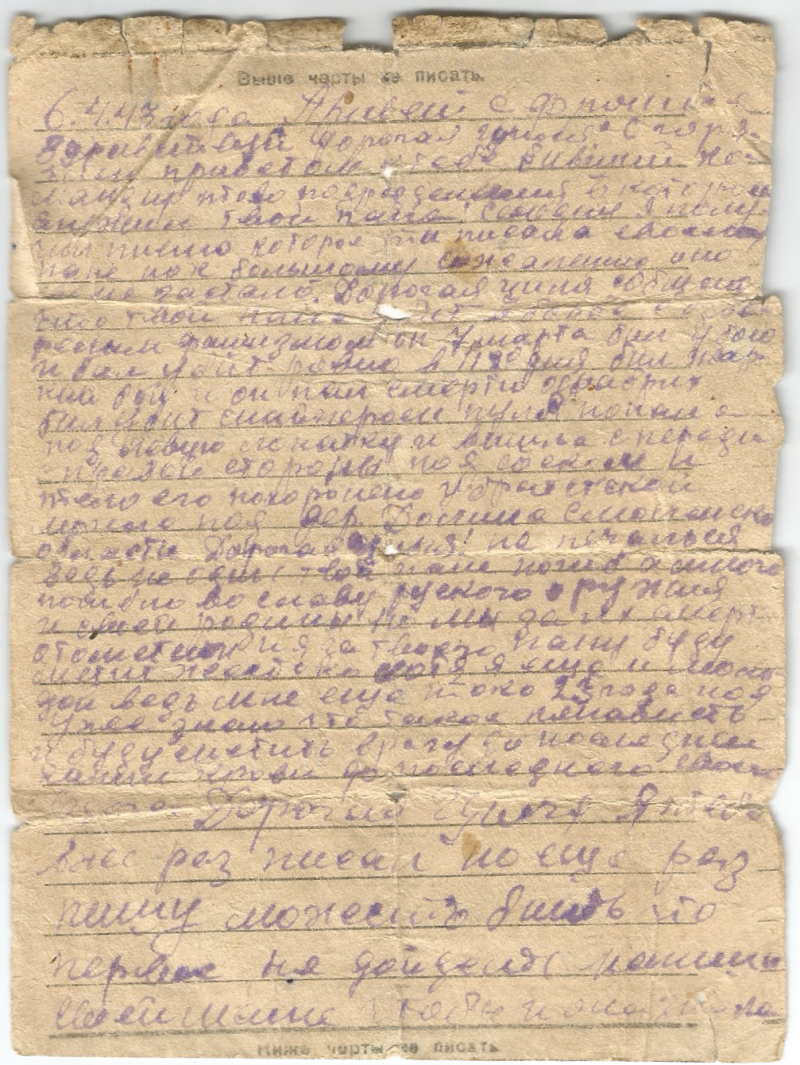 Выше черты не писать.
6.4.43 года Привет с фронта
Здравствуй Дорогая
приветом к тебе бивший ко-
мандир того подразделения в котором
твой папа. Сегодня я полу-
чил писмо которое ти писала своему
папе но к большому сожелению оно
не застало. Дорогая
твой
фашизмом он 7 марта бил у бою
и бил убит в дня бил жар-
кий бой и он пал смертю храбрих
бил убит снайпером пуля попала
под левую лопатку и вишла спереди
с правой стороны под соском и
тело его похоронено у братской
могиле под дер. Смоленской
области Дорогая не печалься
ведь не один твой папа погиб а много
погибло во славу руского оружия
и своей родины но ми за их смерть
отомстим и я за твоего папу буду
мстит жестоко хотя я еще и моло-
дой ведь мне еще токо 23 года но я
уже знаю что такое ненависть
и буду мстить врагу до последней
капли крови до последнего своего
Дорогая я тебе
раз писал но еще раз
пишу может бить что
первое не дойдет напиши
своей маме чтоби и она знала
Ниже черты не писать